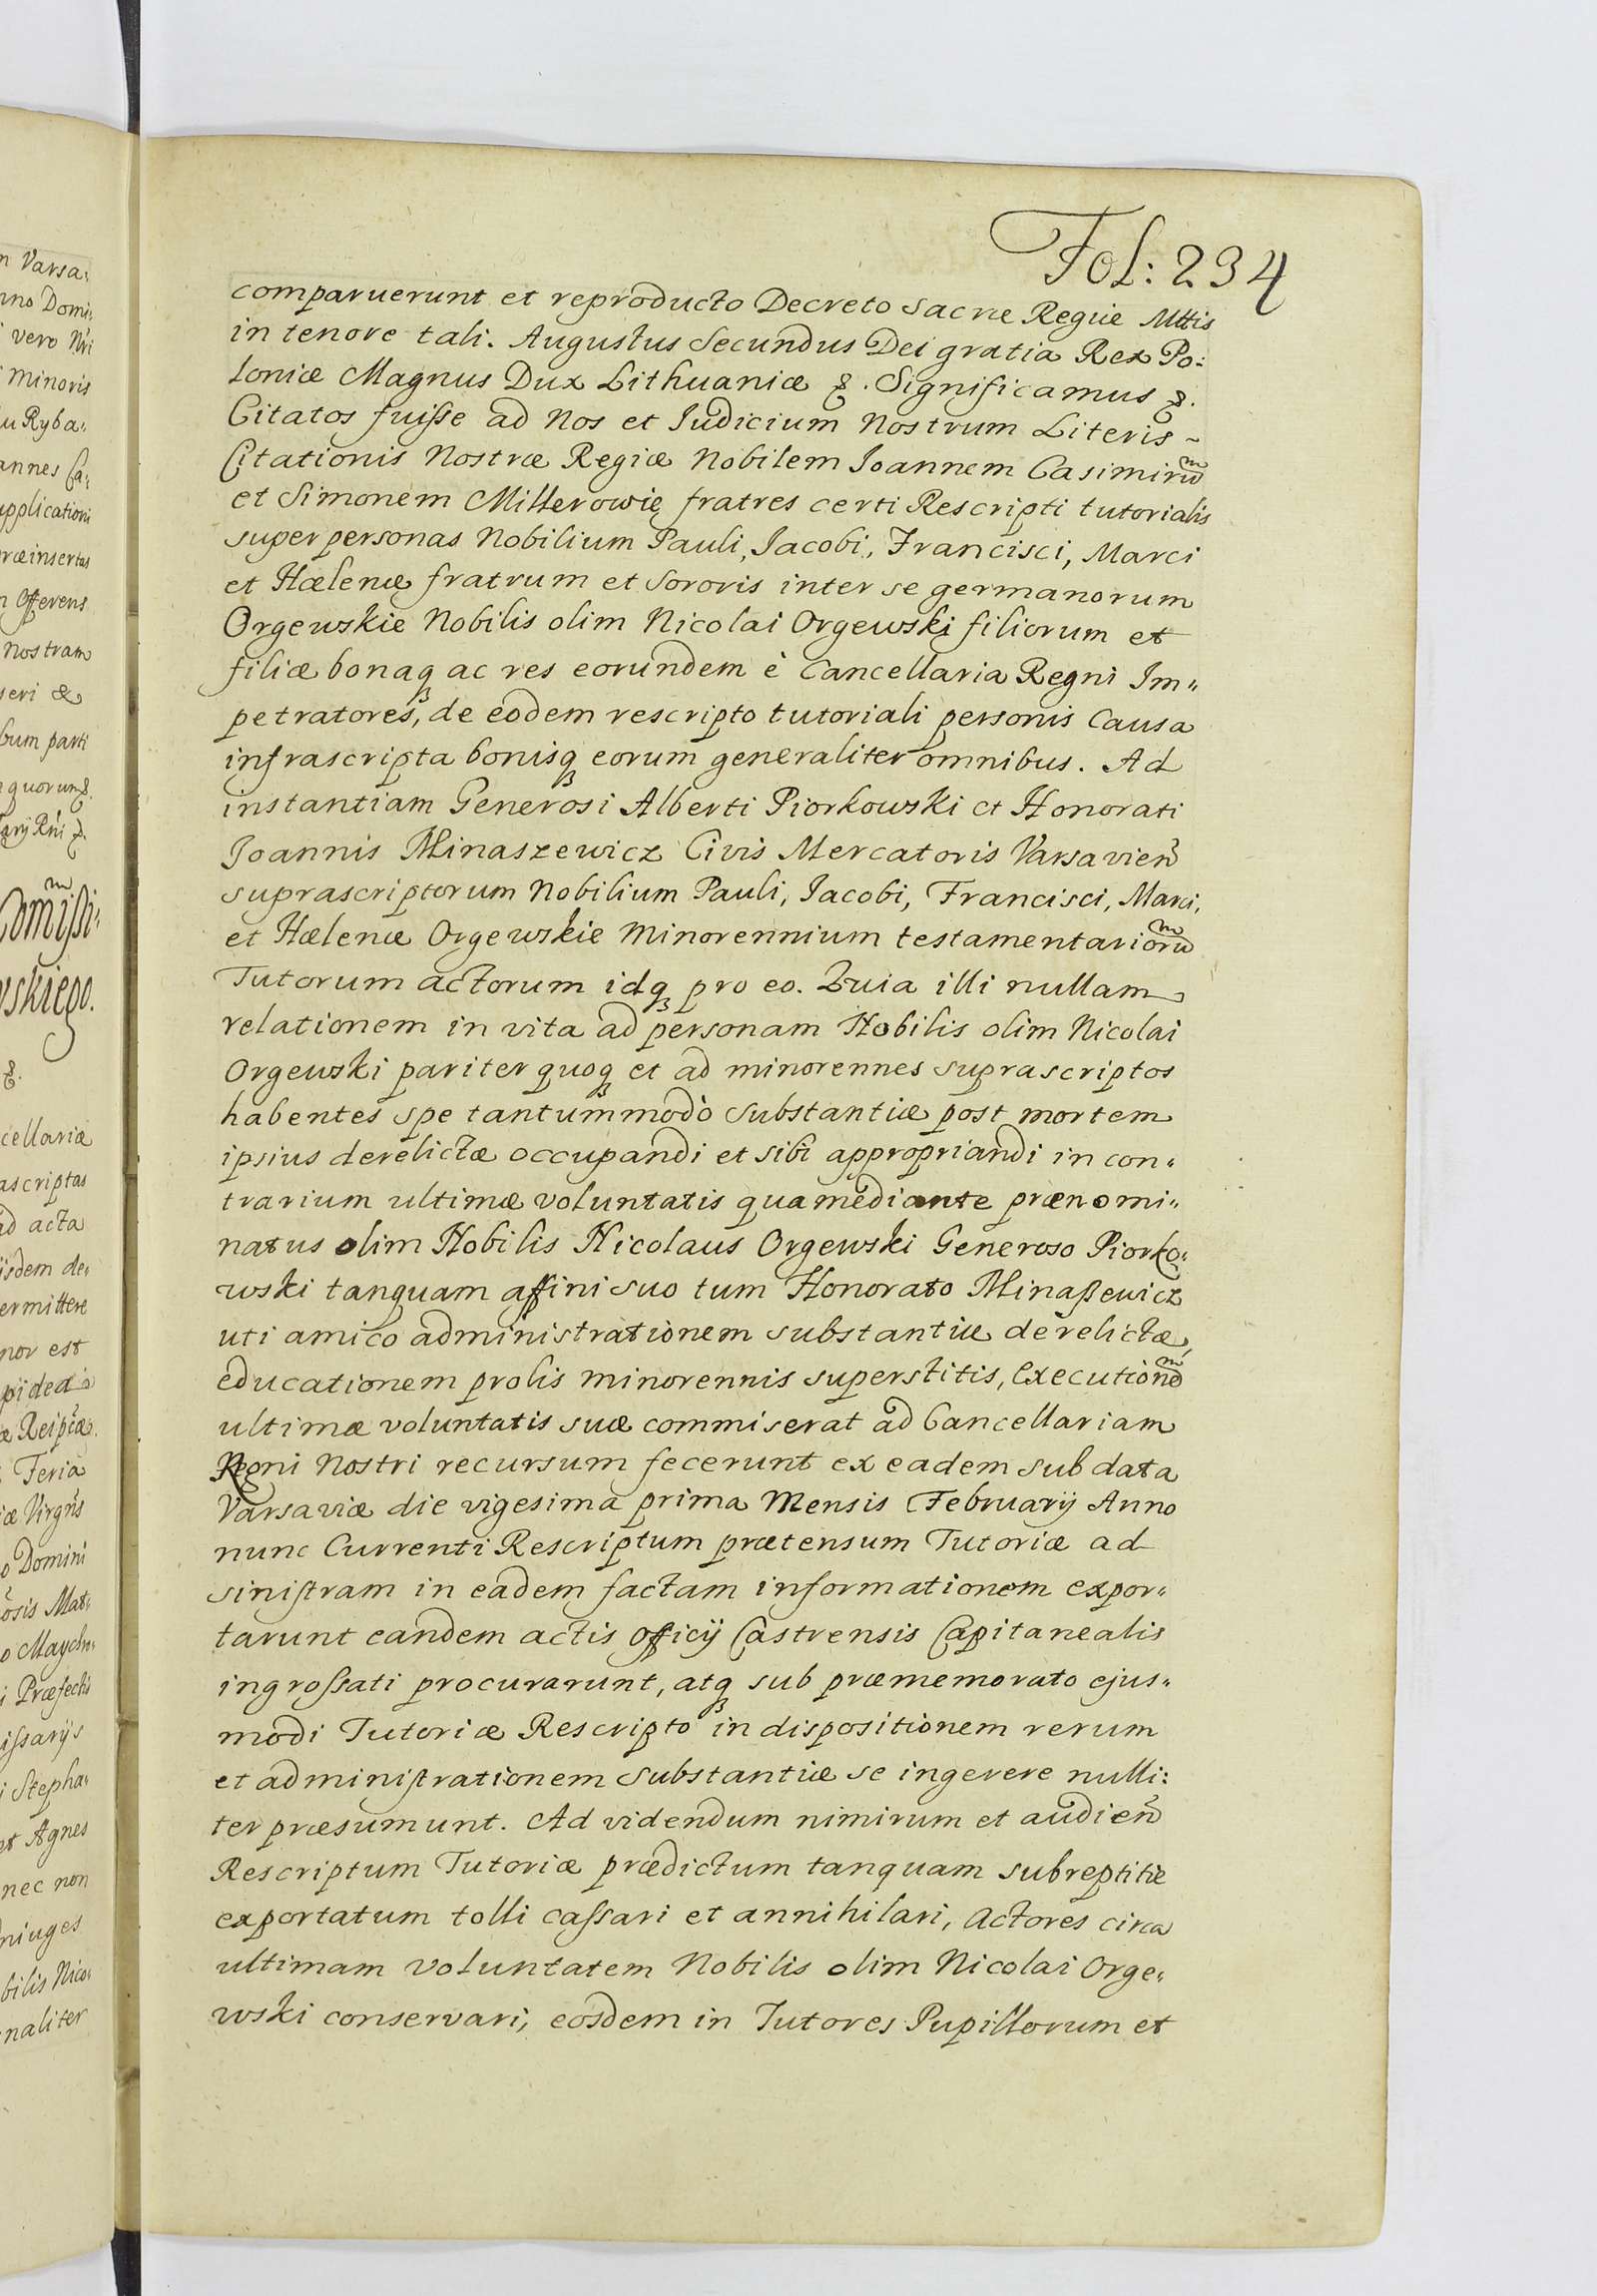 Fol: 234
comparuerunt et reproducto Decreto Sacræ Regiæ Mttis
in tenore tali. Augustus Secundus Dei gratia Rex Po:
loniæ Magnus Dux Lithuaniæ &. Significamus &.
Citatos fuisse ad Nos et Iudicium Nostrum Literis ~
Citationis Nostræ Regiæ Nobilem Joannem Casimirũ
et Simonem Millerowie fratres certi Rescripti tutorialis
super personas Nobilium Pauli, Jacobi, Francisci, Marci
et Hælenæ fratrum et Sororis inter se germanorum
Orgewskie Nobilis olim Nicolai Orgewski filiorum et
filiæ bonaq; ac res eorundem è Cancellaria Regni Im„
petratores, de eodem rescripto tutoriali personis Causa
infrascripta bonisq; eorum generaliter omnibus. Ad
instantiam Generosi Alberti Piorkowski et Honorati
Joannis Minaszewicz Civis Mercatoris Varsavieñ
suprascriptorum Nobilium Pauli, Jacobi, Francisci, Marci,
et Hælenæ Orgewskie Minorennium testamentariorũ
Tutorum actorum idq; pro eo. Quia illi nullam
relationem in vita ad personam Nobilis olim Nicolai
Orgewski pariter quoq; et ad minorennes suprascriptos
habentes spe tantummodò substantiæ post mortem
ipsius derelictæ occupandi et sibi appropriandi in con„
trarium ultimæ voluntatis qua mediante prænomi„
natus olim Nobilis Nicolaus Orgewski Generoso Piorko„
wski tanquam affini suo tum Honorato Minaßewicz
uti amico administrationem substantiæ derelictæ,
educationem prolis minorennis superstitis, Executionẽ
ultimæ voluntatis suæ commiserat ad Cancellariam
Regni Nostri recursum fecerunt ex eadem sub data
Varsaviæ die vigesima prima Mensis Februarij Anno
nunc Currenti Rescriptum prætensum Tutoriæ ad
sinistram in eadem factam informationem expor„
tarunt eandem actis officij Castrensis Capitanealis
ingrossati procurarunt, atq; sub præmemorato ejus„
modi Tutoriæ Rescripto in dispositionem rerum
et administrationem substantiæ se ingerere nulli:
ter præsumunt. Ad videndum nimirum et audieñ
Rescriptum Tutoriæ prædictum tanquam subreptitiè
exportatum tolli cassari et annihilari, Actores circa
ultimam voluntatem Nobilis olim Nicolai Orge„
wski conservari, eosdem in Tutores Pupillorum et